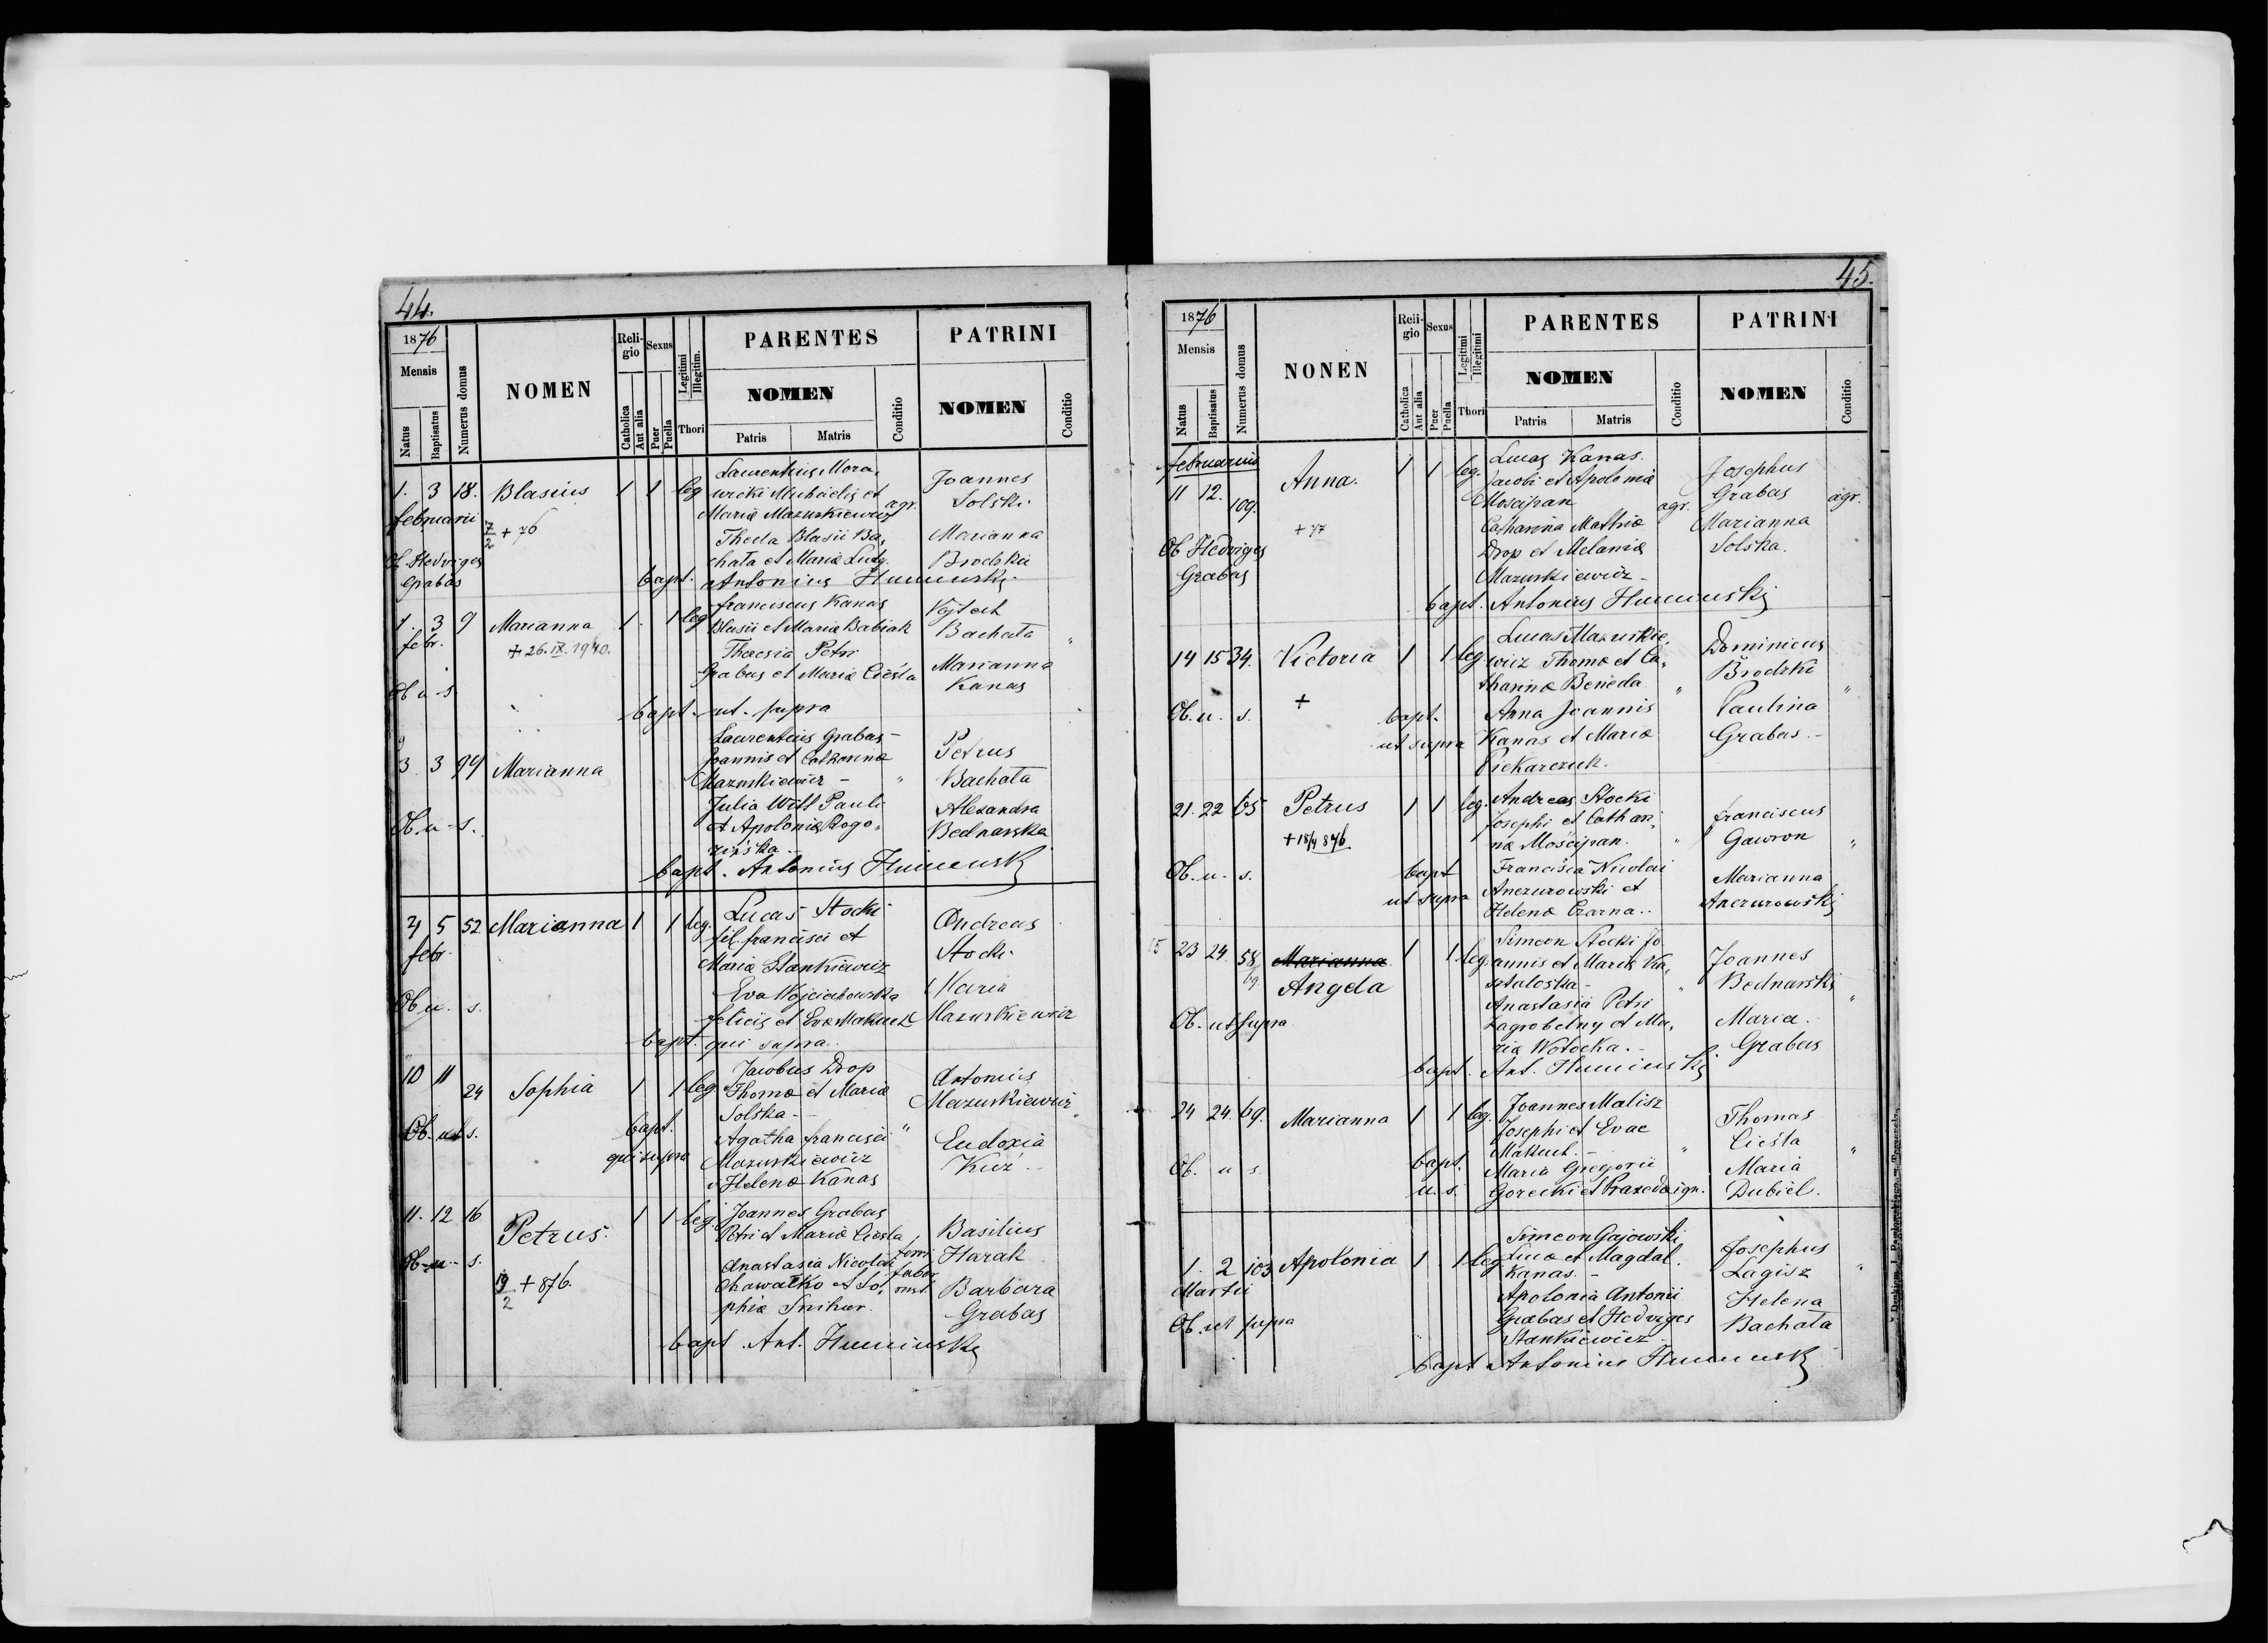 44.
1876
Mensis
Natus
Baptisatus
Numerus domus
NOMEN
Reli-
gio
Catholica
Aut alia
Sexus
Puer
Puella
Legitimi
Illegitim.
Thori
PARENTES
NOMEN
Patris
Matris
Conditio
PATRINI
NOMEN
Conditio
1. 3 18. Blasius 1 1 leg
februarii
7/2 + 76
Ob. Hedviges
Grabas
Laurentius Mora-
wicki Michaelis et
Maria Mazurkiewicz agr.
Thecla Blasii Ba-
chata et Maria Ludy.
Joannes
Solski.
Marianna
Brodzka
bapt. Antonius Humiuski
1. 3 9 Marianna 1. 1 leg
febr.
+ 26.IX.1940.
Ob u s
Franciscus Kanas
Blasii et Maria Babiak
Theresia Petri
Grabas et Maria Cieśla
Vojtech
Bachata "
Marianna
Kanas
bapt. ut supra
3 3 94 Marianna
Ob. u. s.
Laurentius Grabas -
Joannis et Catharina
Mazurkiewicz - "
Julia Witt Pauli
et Apolonia Rogo-
zińska
Petrus
Bachata
Alexandra
Bednarska
bapt. Antonius Humiuski
4 5 52 Marianna 1 1 leg.
febr.
Ob u. s.
Lucas Stocki
fil. francisci et
Maria Stankiewicz
Eva Wojciechowska
felicis et Eva Makuch
Andreas
Stocki
Maria
Mazurkiewicz
bapt. qui supra.
10 11 24 Sophia 1 1 leg
Ob. ut s.
bapt.
qui supra
Jacobus Drop
Thoma et Maria
Solska -
Agatha francisci "
Mazurkiewicz
Helena Kanas
Antonius
Mazurkiewicz "
Eudoxia
Kuź -
11. 12 16 Petrus. 1 1 leg.
Ob. u. s.
19/2 + 876.
Joannes Grabas
Petri et Maria Ciesla
Anastasia Nicolai
Chawałko et So-
phia Snihur.
Basilius
Harak
Barbara
Grabas
bapt. Ant. Humiuski
45.
1876
Mensis
Natus
Baptisatus
Numerus domus
NONEN
Reli-
gio
Catholica
Aut alia
Sexus
Puer
Puella
Legitimi
Illegitimi
Thori
PARENTES
NOMEN
Patris
Matris
Conditio
PATRINI
NOMEN
Conditio
februarius
11 12. 109. Anna. 1 1 leg.
+ 77
Ob Hedviges
Grabas
Lucas Kanas.
Jacobi et Apolonia
Moscipan agr.
Catharina Mathia
Drop et Melania
Mazurkiewicz -
Josephus
Grabas agr.
Marianna
Solska.
bapt. Antonius Humiuski
14 15 34. Victoria 1 1 leg.
+
Ob. u. s.
bapt.
ut supra
Lucas Mazurkie-
wicz Thoma et Ca-
tharina Benieda "
Anna Joannis
Kanas et Maria
Piekarczuk.
Dominicus
Brodzki "
Paulina
Grabas. -
21. 22 65 Petrus 1 1 leg.
+ 18/4 876
Ob. u. s.
bapt
ut supra
Andreas Stocki
Josephi et Cathari-
na Mościpan. "
Francisca Nicolai
Anczurowski et
Helena Czarna..
franciscus
Gawron "
Marianna
Anczurowski
15 23 24. 58/69 Marianna 1 1 leg.
Angela
Ob. ut supra
Simeon Stocki Jo
annis et Maria Ka-
sztaloska - "
Anastasia Petri
Zagrobelny et Ma-
ria Wołocka. -
Joannes
Bednarski "
Maria.
Grabas
bapt. Ant. Humiuski.
24 24. 69. Marianna 1 1 leg.
Ob. u s.
bapt.
u. s.
Joannes Malisz
Josephi et Evae
Makuch. - "
Maria Gregorii
Gorecki et Praxeda ign.
Thomas
Cieśla "
Maria
Dubiel.
1. 2 103 Apolonia 1 1 leg.
Martii
Ob. ut supra
Simeon Gajowski
Luca et Magdal.
Kanas. -
Apolonia Antonii
Grabas et Hedviges
Stankiewicz -
Josephus
Lagisz "
Helena
Bachata
bapt. Antonius Humiuski